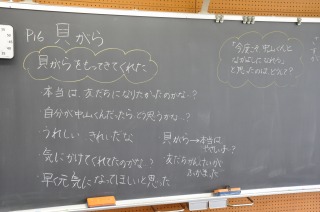 P16 貝がら
貝がらをもってきてくれた
・本当は、友だちになりたかったのかな…?
・自分が中山くんだったらどう思うかな…?
・うれしい きれいだな
・気にかけてくれてたのかな?
・早く元気になってほしいと思った
貝がら→本当は
やさしい…?
友だちかんけいが
ふかまった
「今度こそ中山くんと
なかよしになれそう」
と思ったのはどうして?